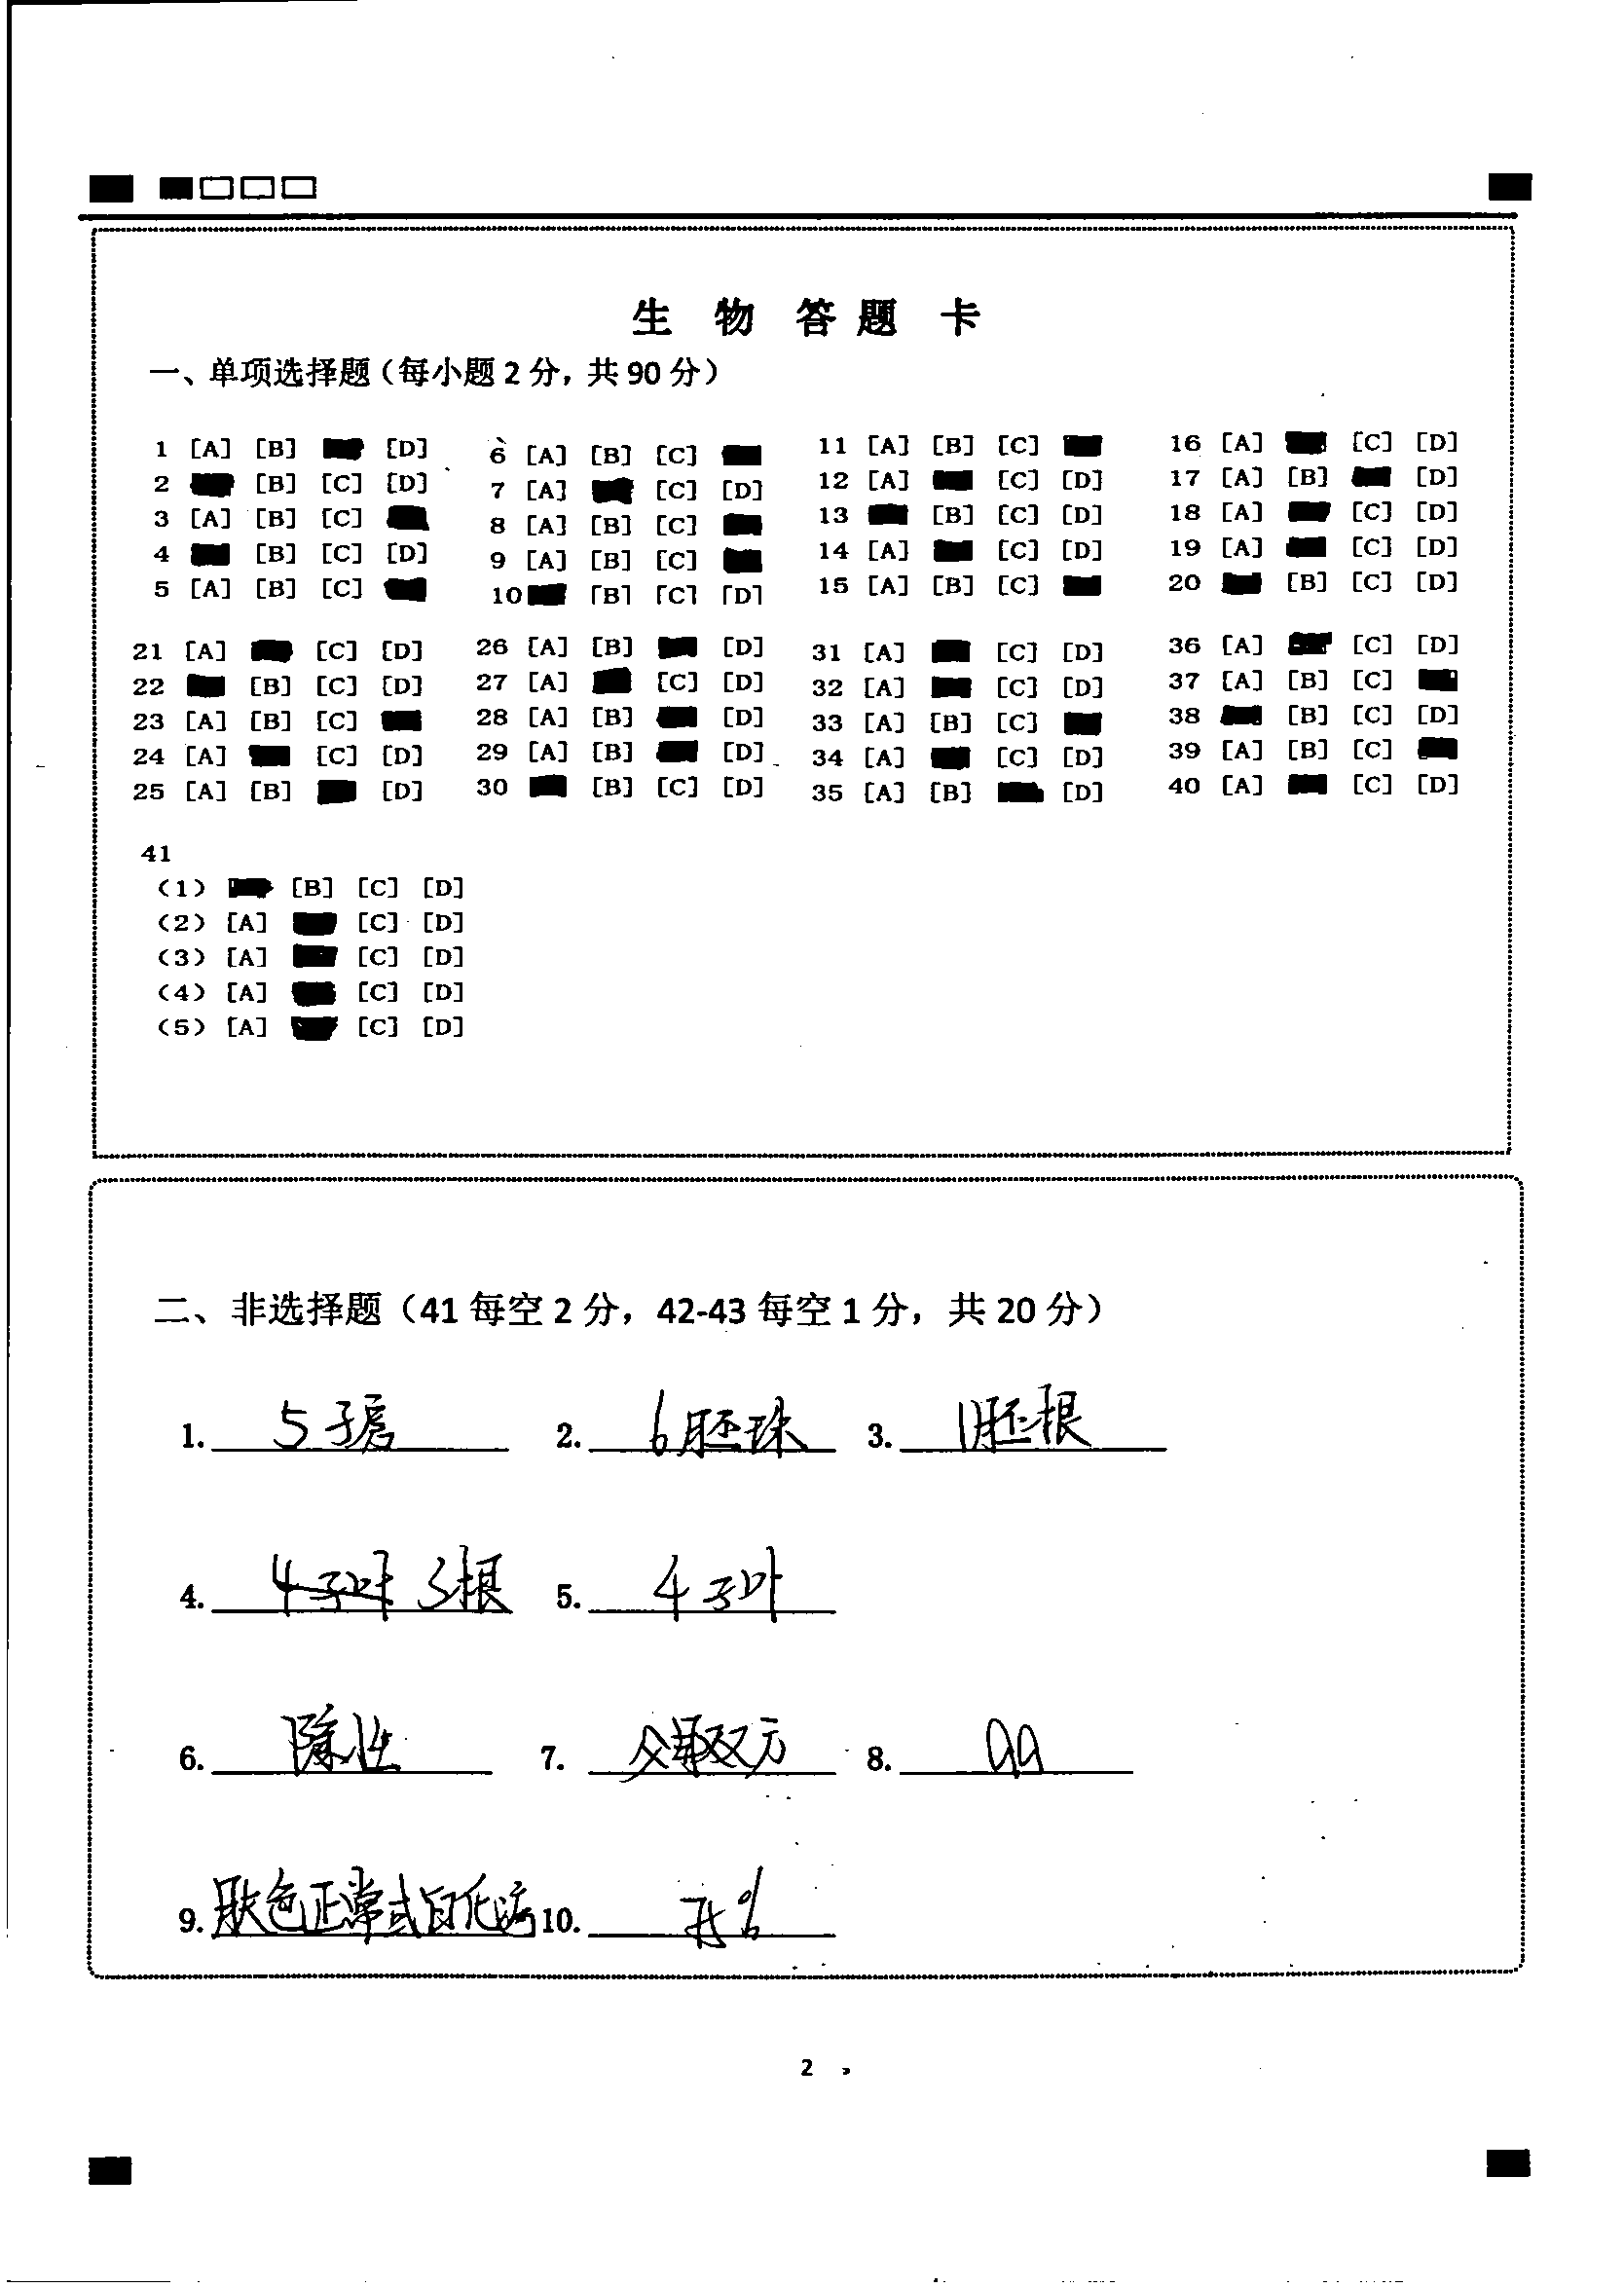 生 物 答 题 卡
一、单项选择题（每小题2分，共90分）
1 [A] [B] [D]
2 [B] [C] [D]
3 [A] [B] [C]
4 [B] [C] [D]
5 [A] [B] [C]
6 [A] [B] [C]
7 [A] [C] [D]
8 [A] [B] [C]
9 [A] [B] [C]
10 [B] [C] [D]
11 [A] [B] [C]
12 [A] [C] [D]
13 [B] [C] [D]
14 [A] [C] [D]
15 [A] [B] [C]
16 [A] [C] [D]
17 [A] [B] [D]
18 [A] [C] [D]
19 [A] [C] [D]
20 [B] [C] [D]
21 [A] [C] [D]
22 [B] [C] [D]
23 [A] [B] [C]
24 [A] [C] [D]
25 [A] [B] [D]
26 [A] [B] [D]
27 [A] [C] [D]
28 [A] [B] [D]
29 [A] [B] [D]
30 [B] [C] [D]
31 [A] [C] [D]
32 [A] [C] [D]
33 [A] [B] [C]
34 [A] [C] [D]
35 [A] [B] [D]
36 [A] [C] [D]
37 [A] [B] [C]
38 [B] [C] [D]
39 [A] [B] [C]
40 [A] [C] [D]
41
(1) [B] [C] [D]
(2) [A] [C] [D]
(3) [A] [C] [D]
(4) [A] [C] [D]
(5) [A] [C] [D]
二、非选择题（41每空2分，42-43每空1分，共20分）
1. 5子房 2. 6胚珠 3. 1胚根
4. 3根 5. 4子叶
6. 隐性 7. 双方 8. aa
9. 肤色正常或白化 10. %
2